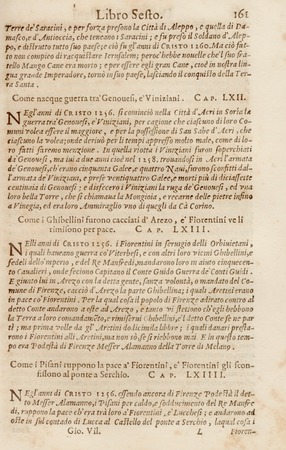 Libro Sesto. 161
Terre de' Saracini, e per forza presono la Città di Aleppo, e quella di Da-
masco, e d'Antioccia, che teneano i Saracini; e fu preso il Soldano d'Alep-
po, e distrutto tutto suo paese; e ciò fu gl'anni di CRISTO 1260. Ma ciò fat-
to non compieo di racquistare Ierusalem; però c'hebbe novelle che'l suo fra-
tello Mango Cane era morto; e per essere egli gran Cane, cioè in nostra lin-
gua grande Imperadore, tornò in suo paese, lasciando il conquisto della Ter-
ra Santa.
Come nacque guerra tra' Genovesi, e' Viniziani. CAP. LXII.
NEgl'anni di CRISTO 1256. si cominciò nella Città d'Acri in Soria la
guerra tra' Genovesi, e' Viniziani, per cagione che ciascuno di loro Co-
muni volea essere il maggiore, e per la possessione di San Sabe d'Acri, che
ciascuno la volea; onde derivò per li tempi appresso molto male, come di lo-
ro fatti faremo menzione. In quella riotta i Viniziani furon soperchiati
da' Genovesi, ma ivi a due anni cioè nel 1258. trovandosi in Acri l'armata
de' Genovesi, ch'erano cinquanta Galee e quattro Navi, furono sconfitti dal-
l'armata de' Viniziani, e presi ventiquattro Galee, e morti più di diciassette
centinaia di Genovesi; e disfecero i Viniziani la ruga de' Genovesi, ed una
loro bella Torre, che si chiamava la Mongioia, e recarne delle pietre infino
a Vinegia, ed era loro Ammiraglio uno di quegli da Cà Corino.
Come i Ghibellini furono cacciati d'Arezo, e' Fiorentini ve li
rimisono per pace. CAP. LXIII.
NElli anni di CRISTO 1256. i Fiorentini in servigio delli Orbivietani,
i quali haveano guerra co' Viterbesi, e con altri loro vicini Ghibellini,
fedeli dello imperio, e del Re Manfredi, mandarono loro in aiuto cinquecento
Cavalieri, onde feciono Capitano il Conte Guido Guerra de' Conti Guidi.
E giunto lui in Arezo con la detta gente, senza volontà, o mandato del Co-
mune di Firenze, cacciò d'Arezo la parte Ghibellina; i quali Aretini erano
in pace co' Fiorentini. Per la qual cosa il popolo di Firenze adirato contro al
detto Conte andarono a oste ad Arezo, e tanto vi stettono ch'egli hebbono
la Terra a loro comandamento, e rimiservi i Ghibellini, e'l detto Conte se ne par-
tì; ma prima volle da gl'Aretini dodicimila libbre; i quali danari presta-
rono i Fiorentini alli Aretini, ma non sò se si rihebbono mai. E in questo tem-
po era Podestà di Firenze Messer Alamanno della Torre di Melano.
Come i Pisani ruppono la pace a' Fiorentini, e' Fiorentini gli scon-
fissono al ponte a Serchio. CAP. LXIIII.
NEgl'anni di CRISTO 1256. essendo ancora di Firenze Podestà il det-
to Messer Alamanno, i Pisani per caldo, e sodducimento del Re Manfre
di, ruppono la pace ch'era trà loro a' Fiorentini, e' Lucchesi; e andarono ad
oste in sul contado di Lucca al Castello del ponte a Serchio, laqual cosa i
Gio. Vil. L Fioren-